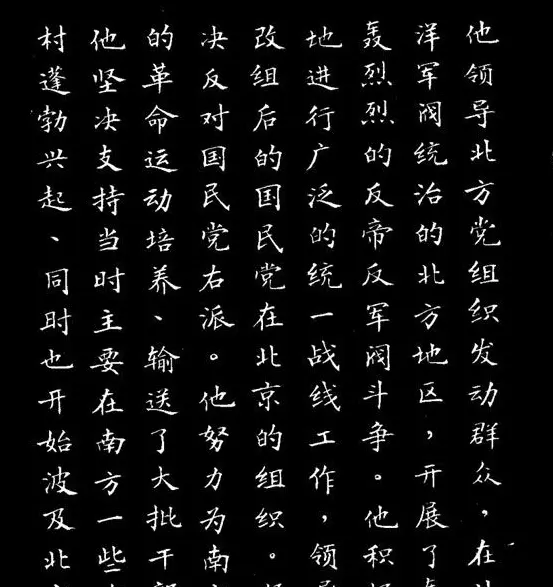 他领导北方党组织发动群众，在
洋军阀统治的北方地区，开展了
轰烈烈的反帝反军阀斗争。他积
地进行广泛的统一战线工作，领
改组后的国民党在北京的组织。
决反对国民党右派。他努力为南
的革命运动培养、输送了大批干
他坚决支持当时主要在南方一些
村蓬勃兴起、同时也开始波及北